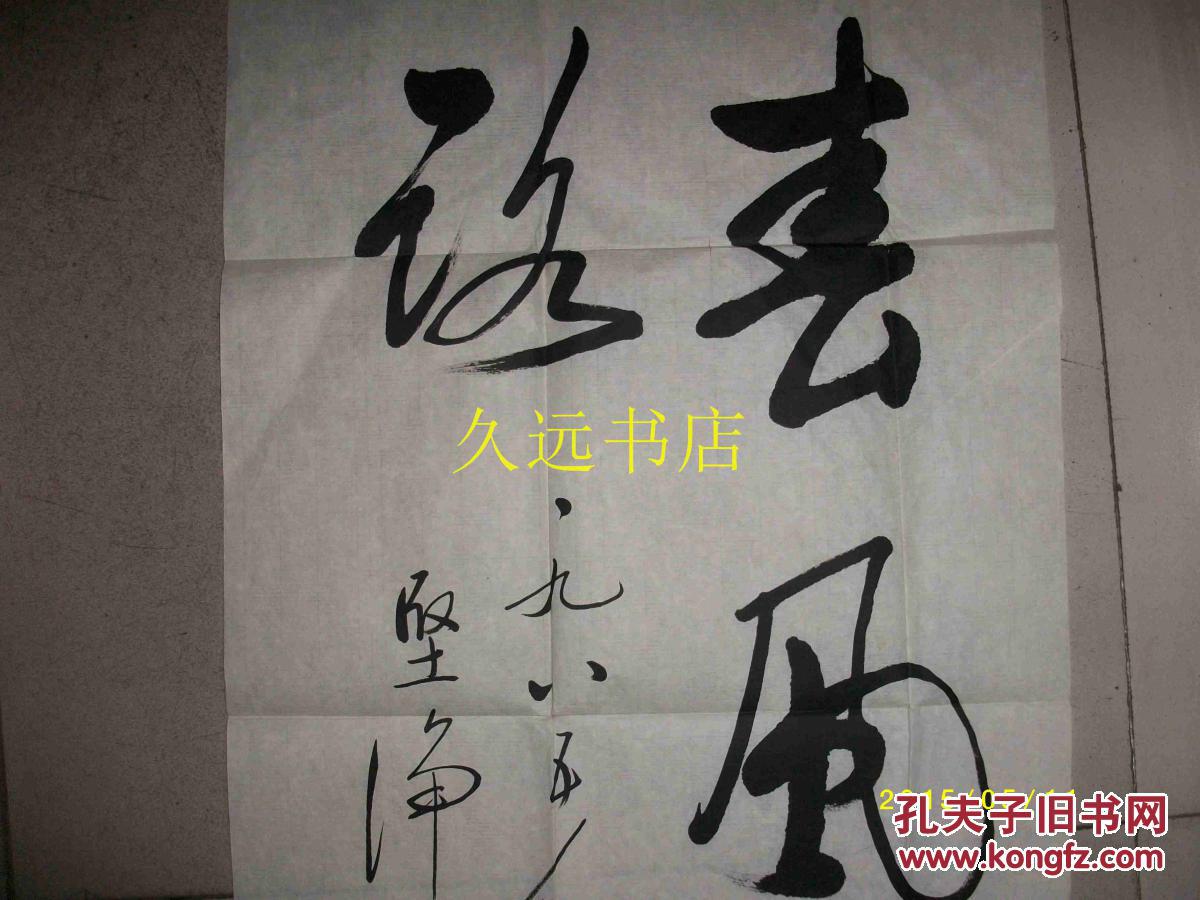 春风
路
一九八五
坚净
久远书店
2015/05/11
孔夫子旧书网
www.kongfz.com